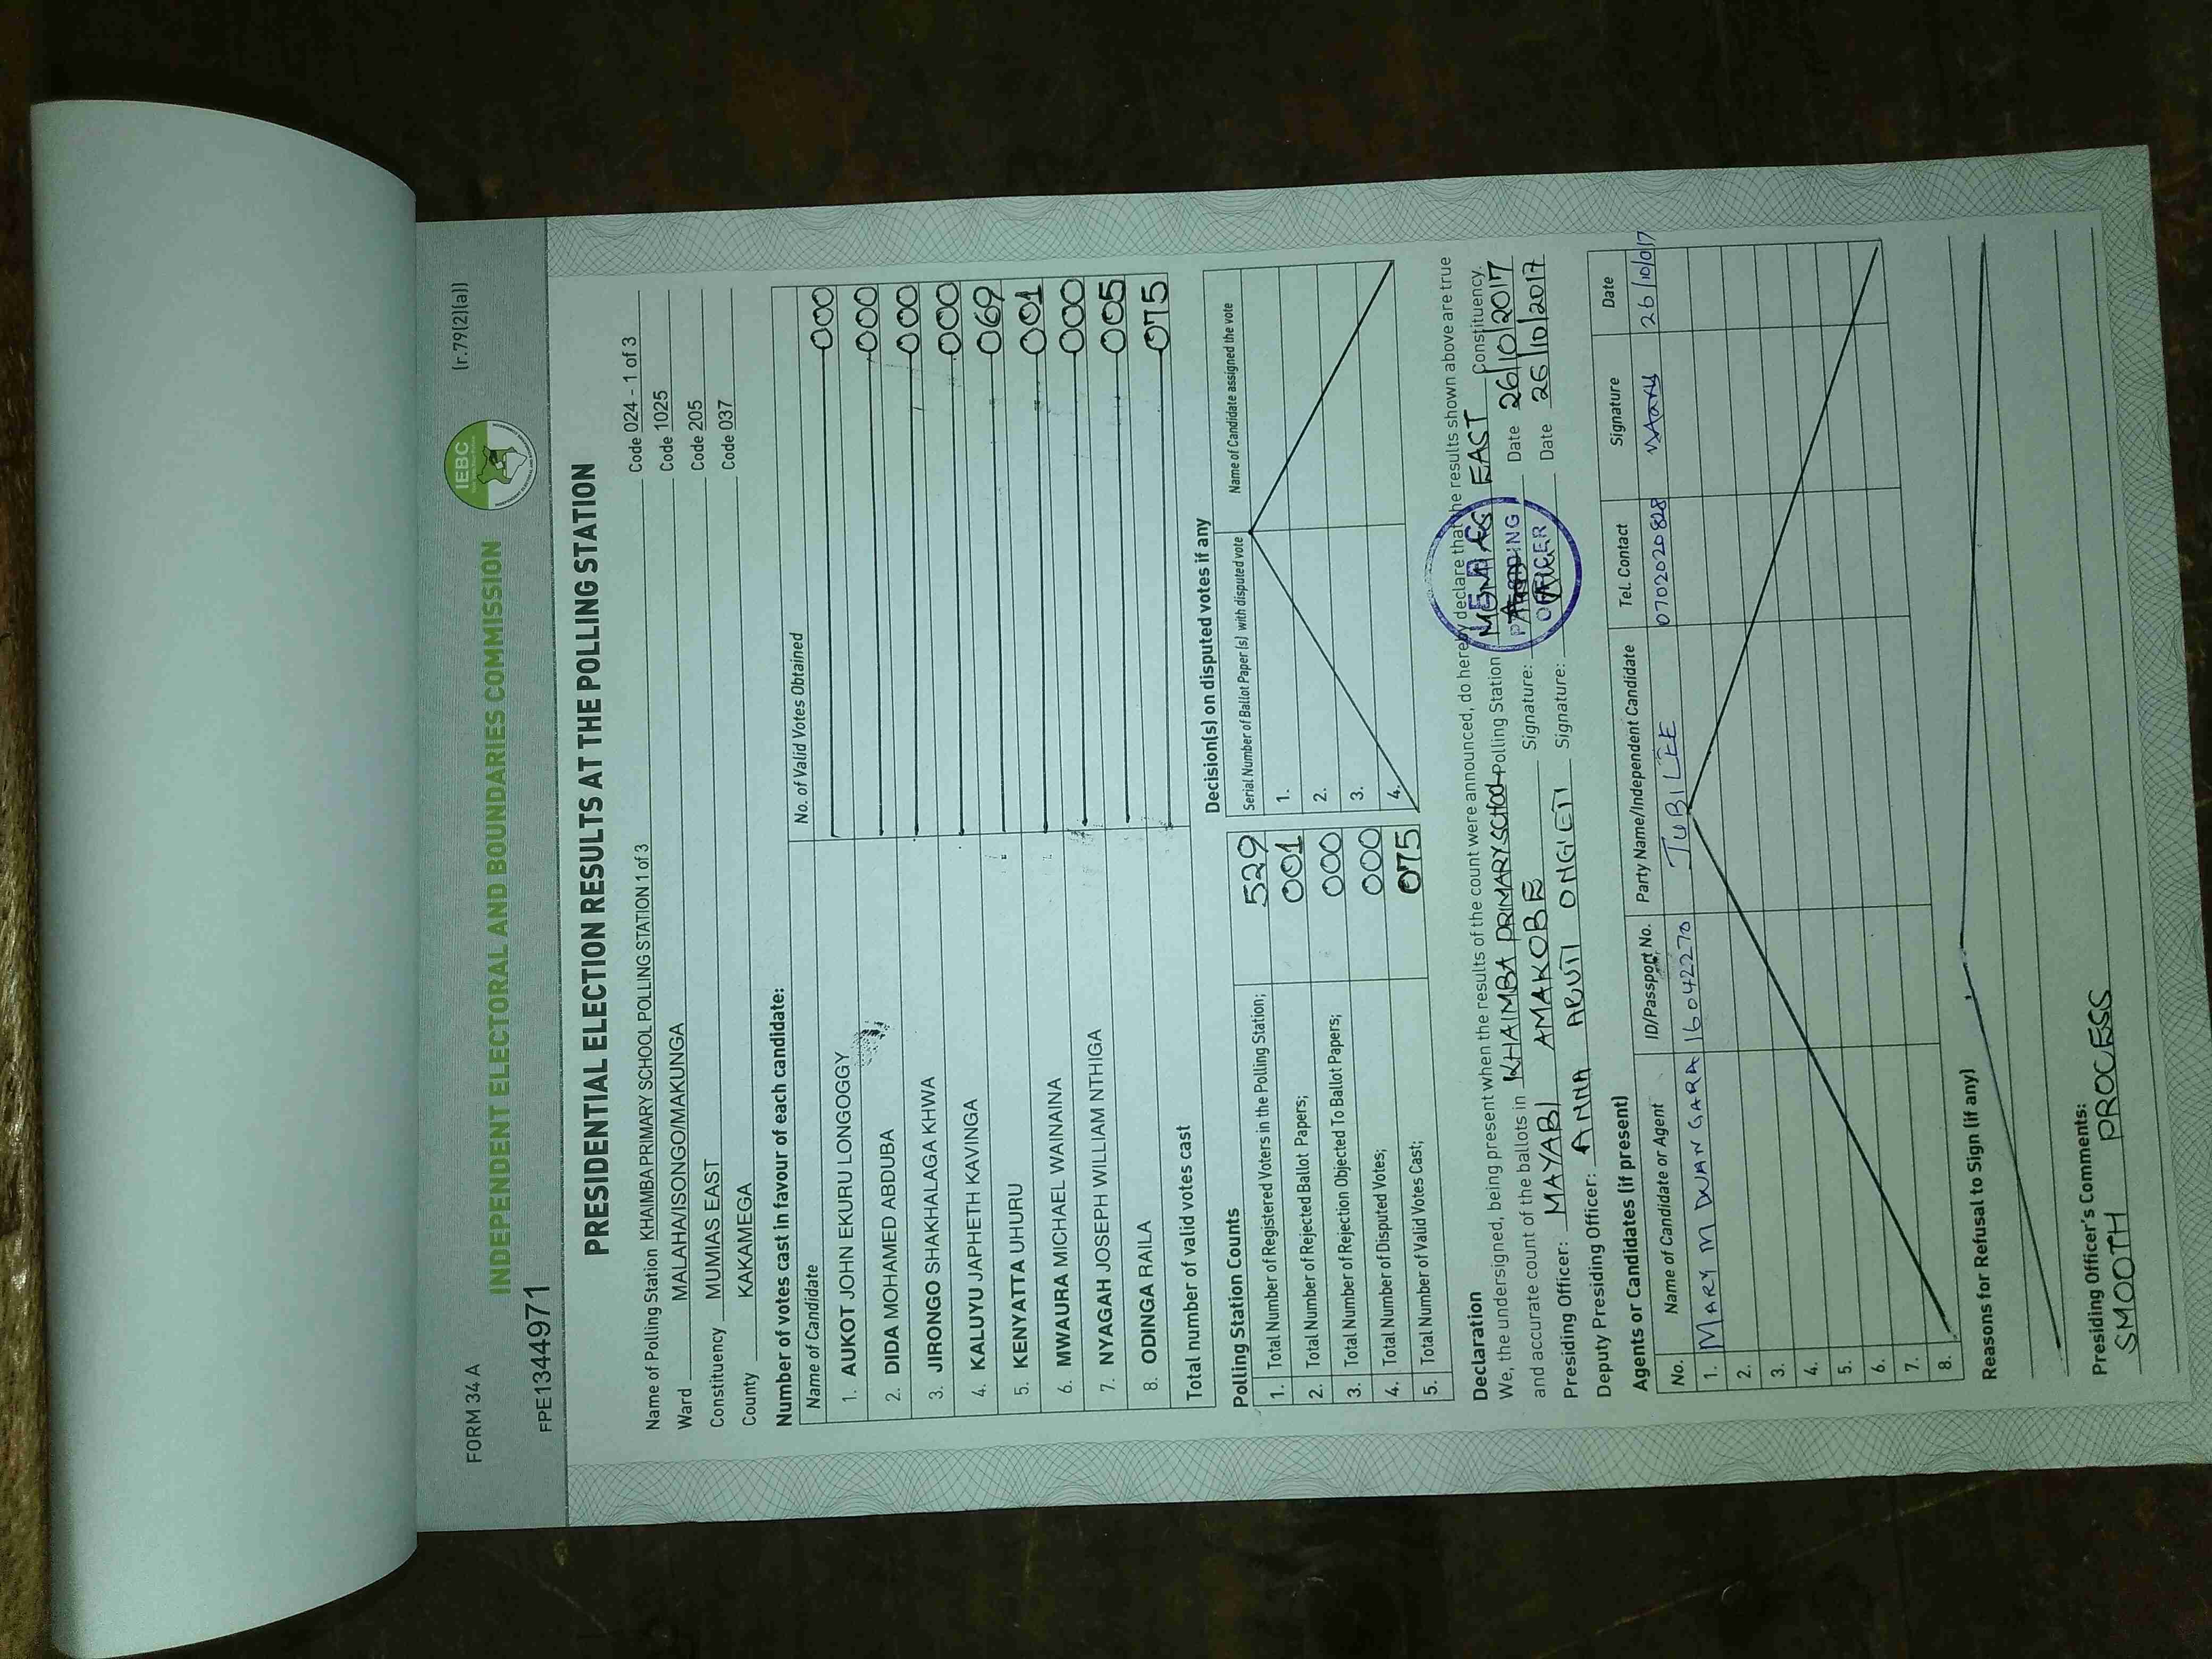 FORM 34 A
(r.79(2)(a))
INDEPENDENT ELECTORAL AND BOUNDARIES COMMISSION
IEBC
FPE1344971
PRESIDENTIAL ELECTION RESULTS AT THE POLLING STATION
Name of Polling Station KHAIMBA PRIMARY SCHOOL POLLING STATION 1 of 3 Code 024 - 1 of 3
Ward MALAHA/ISONGO/MAKUNGA Code 1025
Constituency MUMIAS EAST Code 205
County KAKAMEGA Code 037
Number of votes cast in favour of each candidate:
Name of Candidate No. of Valid Votes Obtained
1. AUKOT JOHN EKURU LONGOGGY 000
2. DIDA MOHAMED ABDUBA 000
3. JIRONGO SHAKHALAGA KHWA 000
4. KALUYU JAPHETH KAVINGA 000
5. KENYATTA UHURU 069
6. MWAURA MICHAEL WAINAINA 001
7. NYAGAH JOSEPH WILLIAM NTHIGA 000
8. ODINGA RAILA 005
Total number of valid votes cast 075
Polling Station Counts
1. Total Number of Registered Voters in the Polling Station; 529
2. Total Number of Rejected Ballot Papers; 001
3. Total Number of Rejection Objected To Ballot Papers; 000
4. Total Number of Disputed Votes; 000
5. Total Number of Valid Votes Cast; 075
Decision(s) on disputed votes if any
Serial Number of Ballot Paper (s) with disputed vote Name of Candidate assigned the vote
1.
2.
3.
4.
Declaration
We, the undersigned, being present when the results of the count were announced, do hereby declare that the results shown above are true
and accurate count of the ballots in KHAIMBA PRIMARY SCHOOL Polling Station MUMIAS EAST Constituency.
Presiding Officer: MAYABI AMAKOBE Signature: Date 26/10/2017
Deputy Presiding Officer: ANNA ABUTI ONG'ETI Signature: Date 26/10/2017
OFFICER
Agents or Candidates (if present)
No. Name of Candidate or Agent ID/Passport No. Party Name/Independent Candidate Tel. Contact Signature Date
1. MARY M DWANGARA 16042270 JUBILEE 0702020828 Mary 26/10/017
2.
3.
4.
5.
6.
7.
8.
Reasons for Refusal to Sign (if any)
Presiding Officer's Comments:
SMOOTH PROCESS